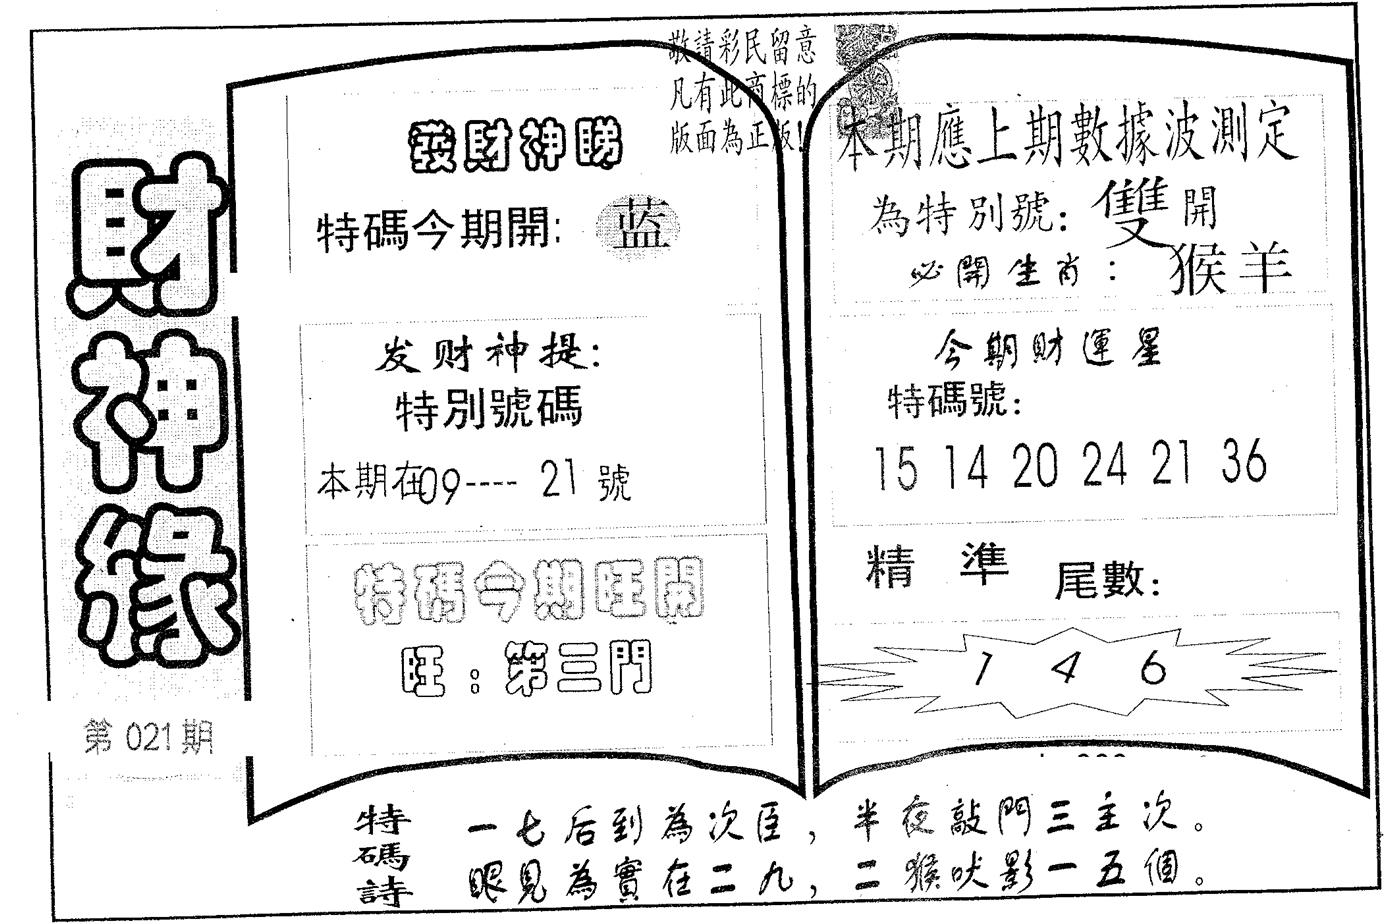 財神緣
第021期
敬請彩民留意
凡有此商標的
版面為正版!
發財神睇
特碼今期開:藍
发财神提:
特別號碼
本期在09----21號
特碼今期旺開
旺:第三門
本期應上期數據波測定
為特別號:雙開
必開生肖:猴羊
今期財運星
特碼號:
15 14 20 24 21 36
精準尾數:
1 4 6
特碼詩
一七后到為次臣,半夜敲門三主次。
眼見為實在二九,二猴吠影一五個。